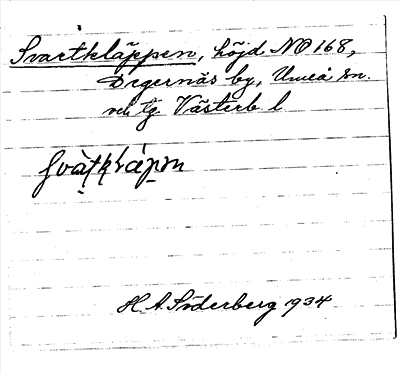 Svartkläppen, höjd NO 168,
Degernäs by, Umeå sn.
och tg Västerb. l
H. A. Söderberg 1934